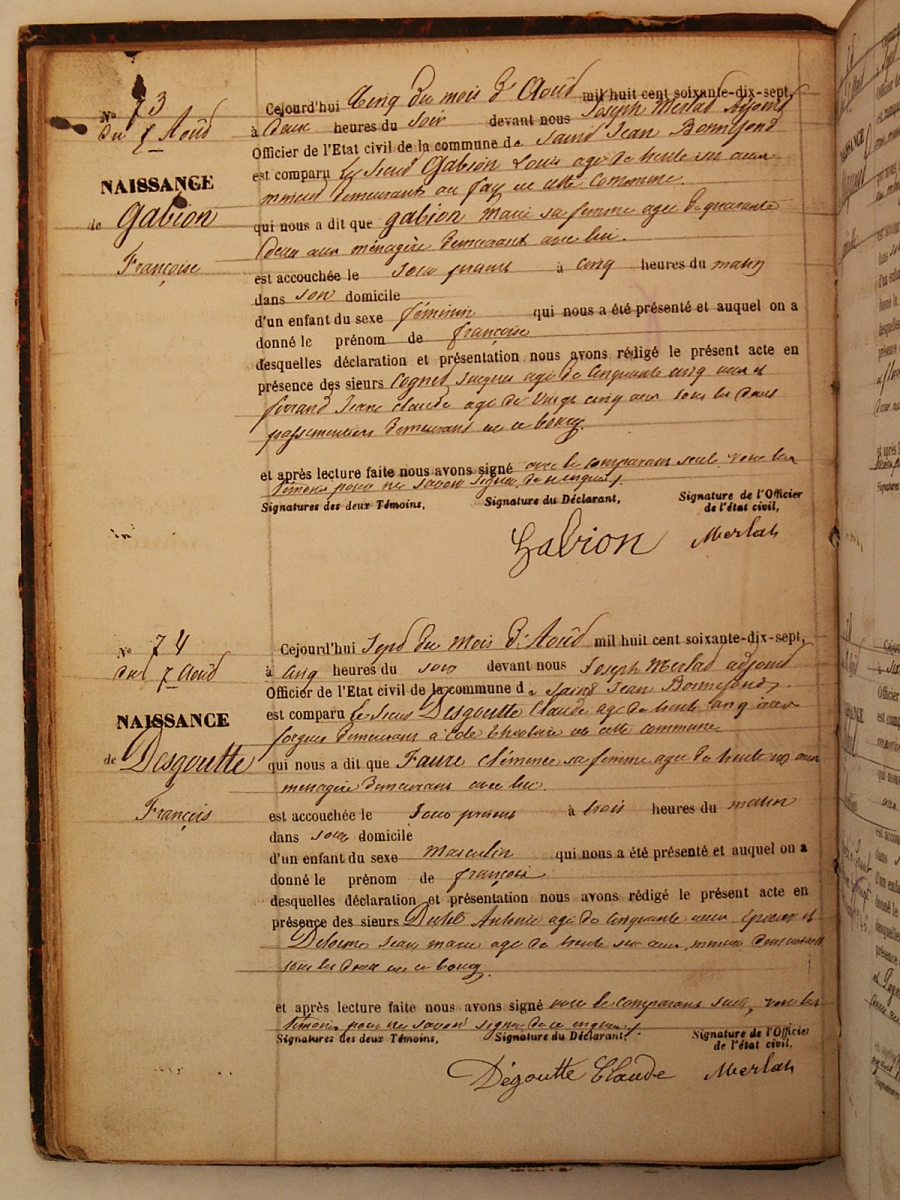 N° 73
du 5 Aoûd
NAISSANCE
de Gabion
Françoise
Cejourd'hui Cinq du mois d'Aoûd mil huit cent soixante-dix-sept,
à Deux heures du soir devant nous Joseph Merlad Adjoind
Officier de l'Etat civil de la commune de Saind Jean Bonnefond
est comparu le sieur Gabion Louis agé de trente six ans
mineur demeurant au fay en cette Commune.
qui nous a dit que gabion Marie sa femme agée de quarante
deux ans ménagère demeurant avec lui.
est accouchée le jour présent à cinq heures du matin
dans son domicile
d'un enfant du sexe féminin qui nous a été présenté et auquel on a
donné le prénom de françoise
desquelles déclaration et présentation nous avons rédigé le présent acte en
présence des sieurs Cognet Jacques agé de Cinquante cinq ans et
Jean Claude agé de Vingt cinq ans tous les deux
passementiers demeurant en ce bourg.
et après lecture faite nous avons signé avec le comparant seul, non les
témoins pour ne savoir signer de ce enquis.
Signatures des deux Témoins, Signature du Déclarant, Signature de l'Officier
de l'état civil,
Gabion Merlad
N° 74
du 7 Aoûd
NAISSANCE
de Desgoutte
François
Cejourd'hui Sept du Mois d'Aoûd mil huit cent soixante-dix-sept,
à cinq heures du soir devant nous Joseph Merlad adjoind
Officier de l'Etat civil de la commune de Saind Jean Bonnefond,
est comparu le sieur Desgoutte Claude agé de trente cinq ans
forgeur demeurant à en cette commune.
qui nous a dit que Faure Clémence sa femme agée de trente ans
ménagère demeurant avec lui.
est accouchée le jour présent à trois heures du matin
dans son domicile
d'un enfant du sexe masculin qui nous a été présenté et auquel on a
donné le prénom de françois
desquelles déclaration et présentation nous avons rédigé le présent acte en
présence des sieurs Antoine agé de cinquante ans et
Delorme Jean marie agé de trente six ans, mineur demeurant
tous les deux en ce bourg.
et après lecture faite nous avons signé avec le comparant seul, non les
témoins pour ne savoir signer de ce enquis.
Signatures des deux Témoins, Signature du Déclarant, Signature de l'Officier
de l'état civil,
Dégoutte Claude Merlad